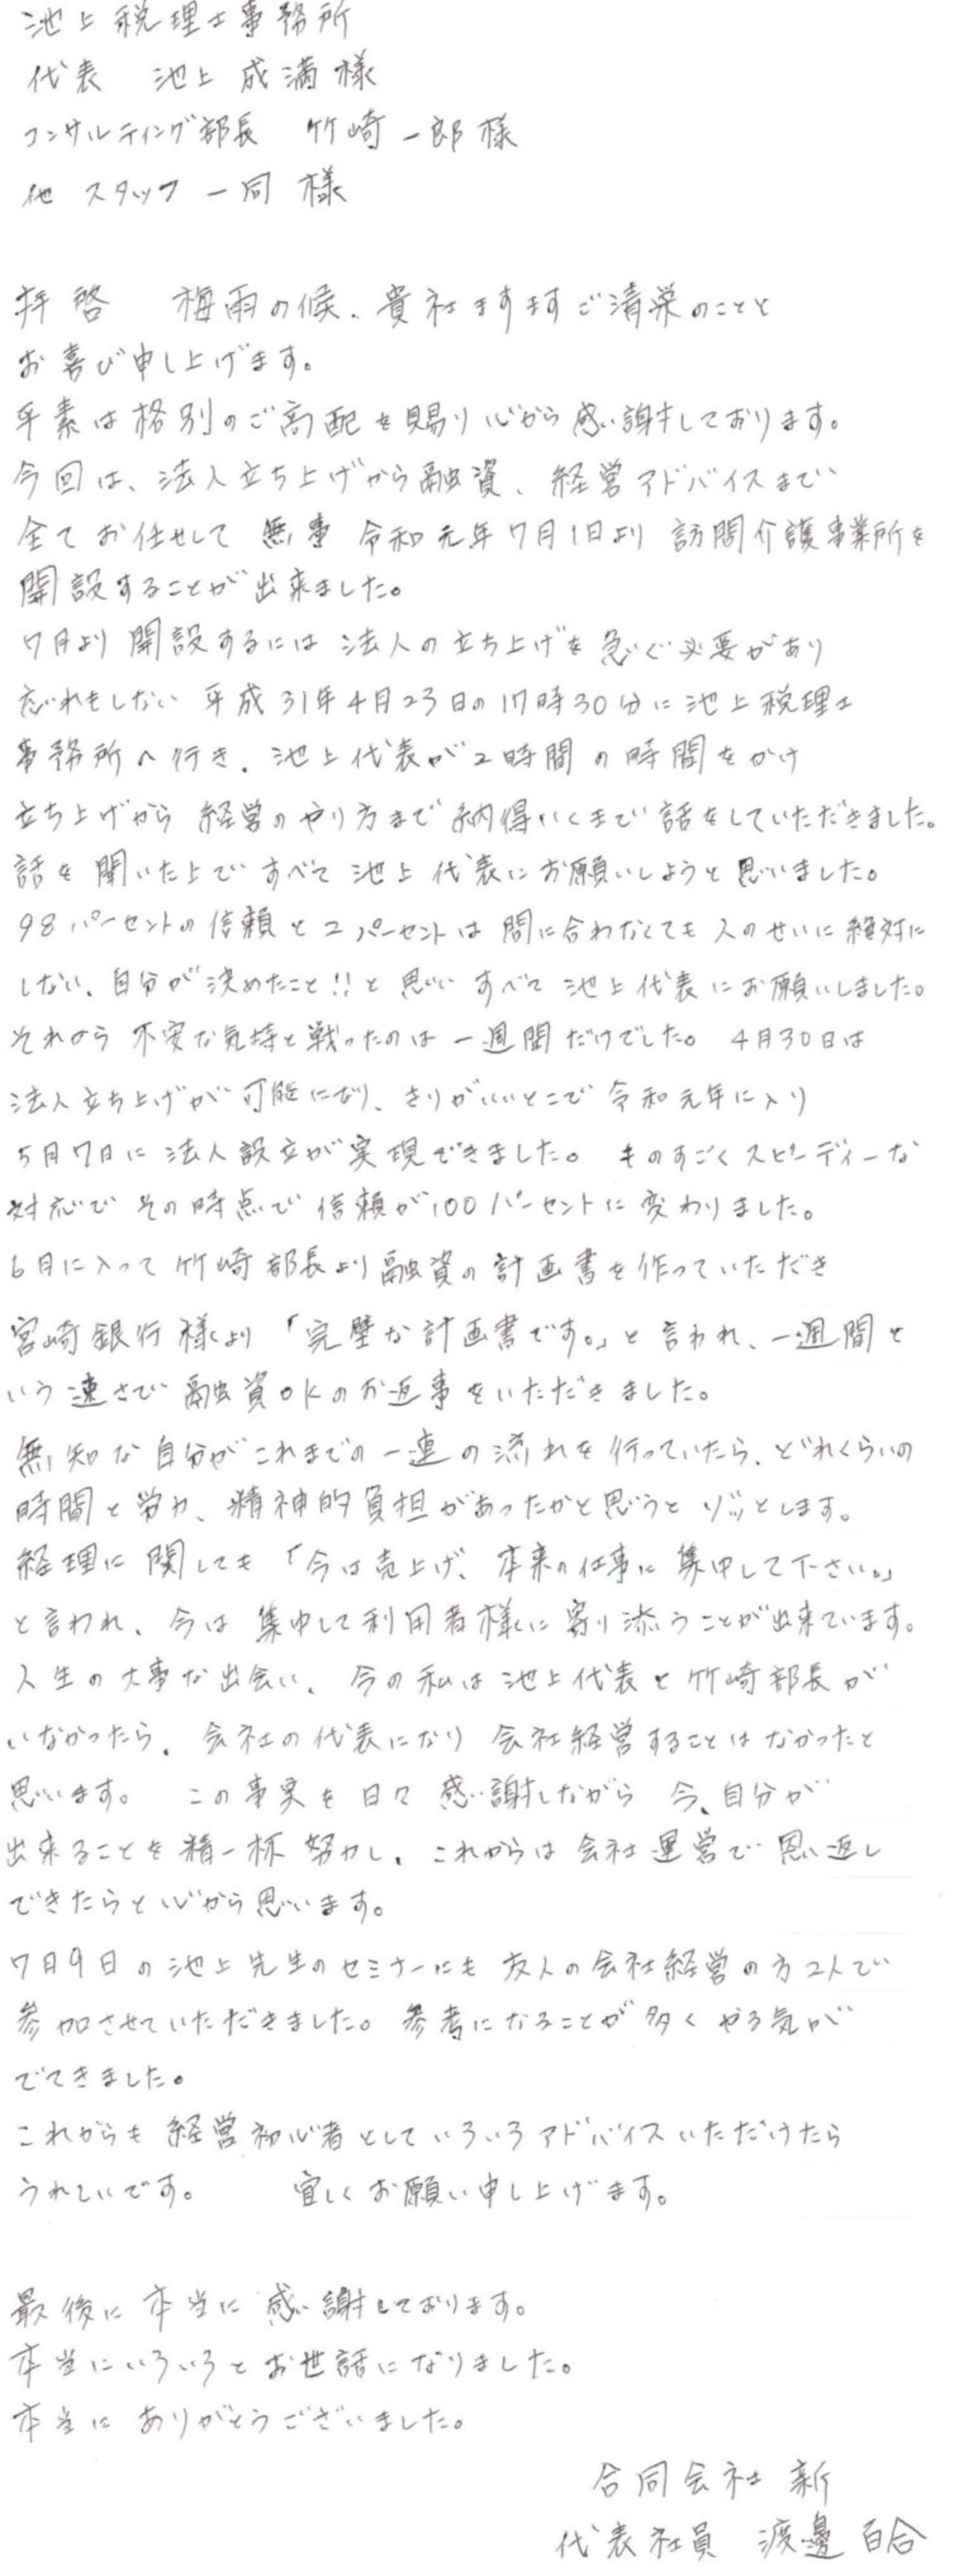 池上税理士事務所
代表 池上成満様
コンサルティング部長 竹崎一郎様
他 スタッフ一同 様
拝啓 梅雨の候、貴社ますますご清栄のことと
お喜び申し上げます。
平素は格別のご高配を賜り心から感謝しております。
今回は、法人立ち上げから融資、経営アドバイスまで
全てお任せして 無事 令和元年7月1日より 訪問介護事業所を
開設することが出来ました。
7月より開設するには 法人の立ち上げを急ぐ必要があり
忘れもしない 平成31年4月23日の17時30分に池上税理士
事務所へ行き、池上代表が2時間の時間をかけ
立ち上げから 経営のやり方まで納得いくまで話をしていただきました。
話を聞いた上で すべて 池上代表にお願いしようと思いました。
98パーセントの信頼と2パーセントは間に合わなくても人のせいに絶対に
しない、自分が決めたこと!!と思い すべて 池上代表にお願いしました。
それから 不安な気持と戦ったのは一週間だけでした。 4月30日は
法人立ち上げが可能になり、きりがいいとこで 令和元年に入り
5月7日に法人設立が実現できました。 ものすごくスピーディーな
対応で その時点で信頼が100パーセントに変わりました。
6月に入って竹崎部長より融資の計画書を作っていただき
宮崎銀行様より「完璧な計画書です。」と言われ、一週間と
いう速さで 融資OKのお返事をいただきました。
無知な自分がこれまでの一連の流れを行っていたら、どれくらいの
時間と労力、精神的負担があったかと思うと ゾッとします。
経理に関しても「今は売上げ、本来の仕事に集中して下さい。」
と言われ、今は 集中して利用者様に寄り添うことが出来ています。
人生の大事な出会い、今の私は池上代表と竹崎部長が
いなかったら、会社の代表になり 会社経営することはなかったと
思います。 この事実を日々 感謝しながら 今、自分が
出来ることを精一杯 努力し、これからは会社運営で恩返し
できたらと心から思います。
7月9日の池上先生のセミナーにも 友人の会社経営の方2人で
参加させていただきました。参考になることが多く やる気が
でてきました。
これからも経営初心者としていろいろアドバイスいただけたら
うれしいです。 宜しくお願い申し上げます。
最後に本当に感謝しております。
本当にいろいろとお世話になりました。
本当にありがとうございました。
合同会社 新
代表社員 渡邊百合